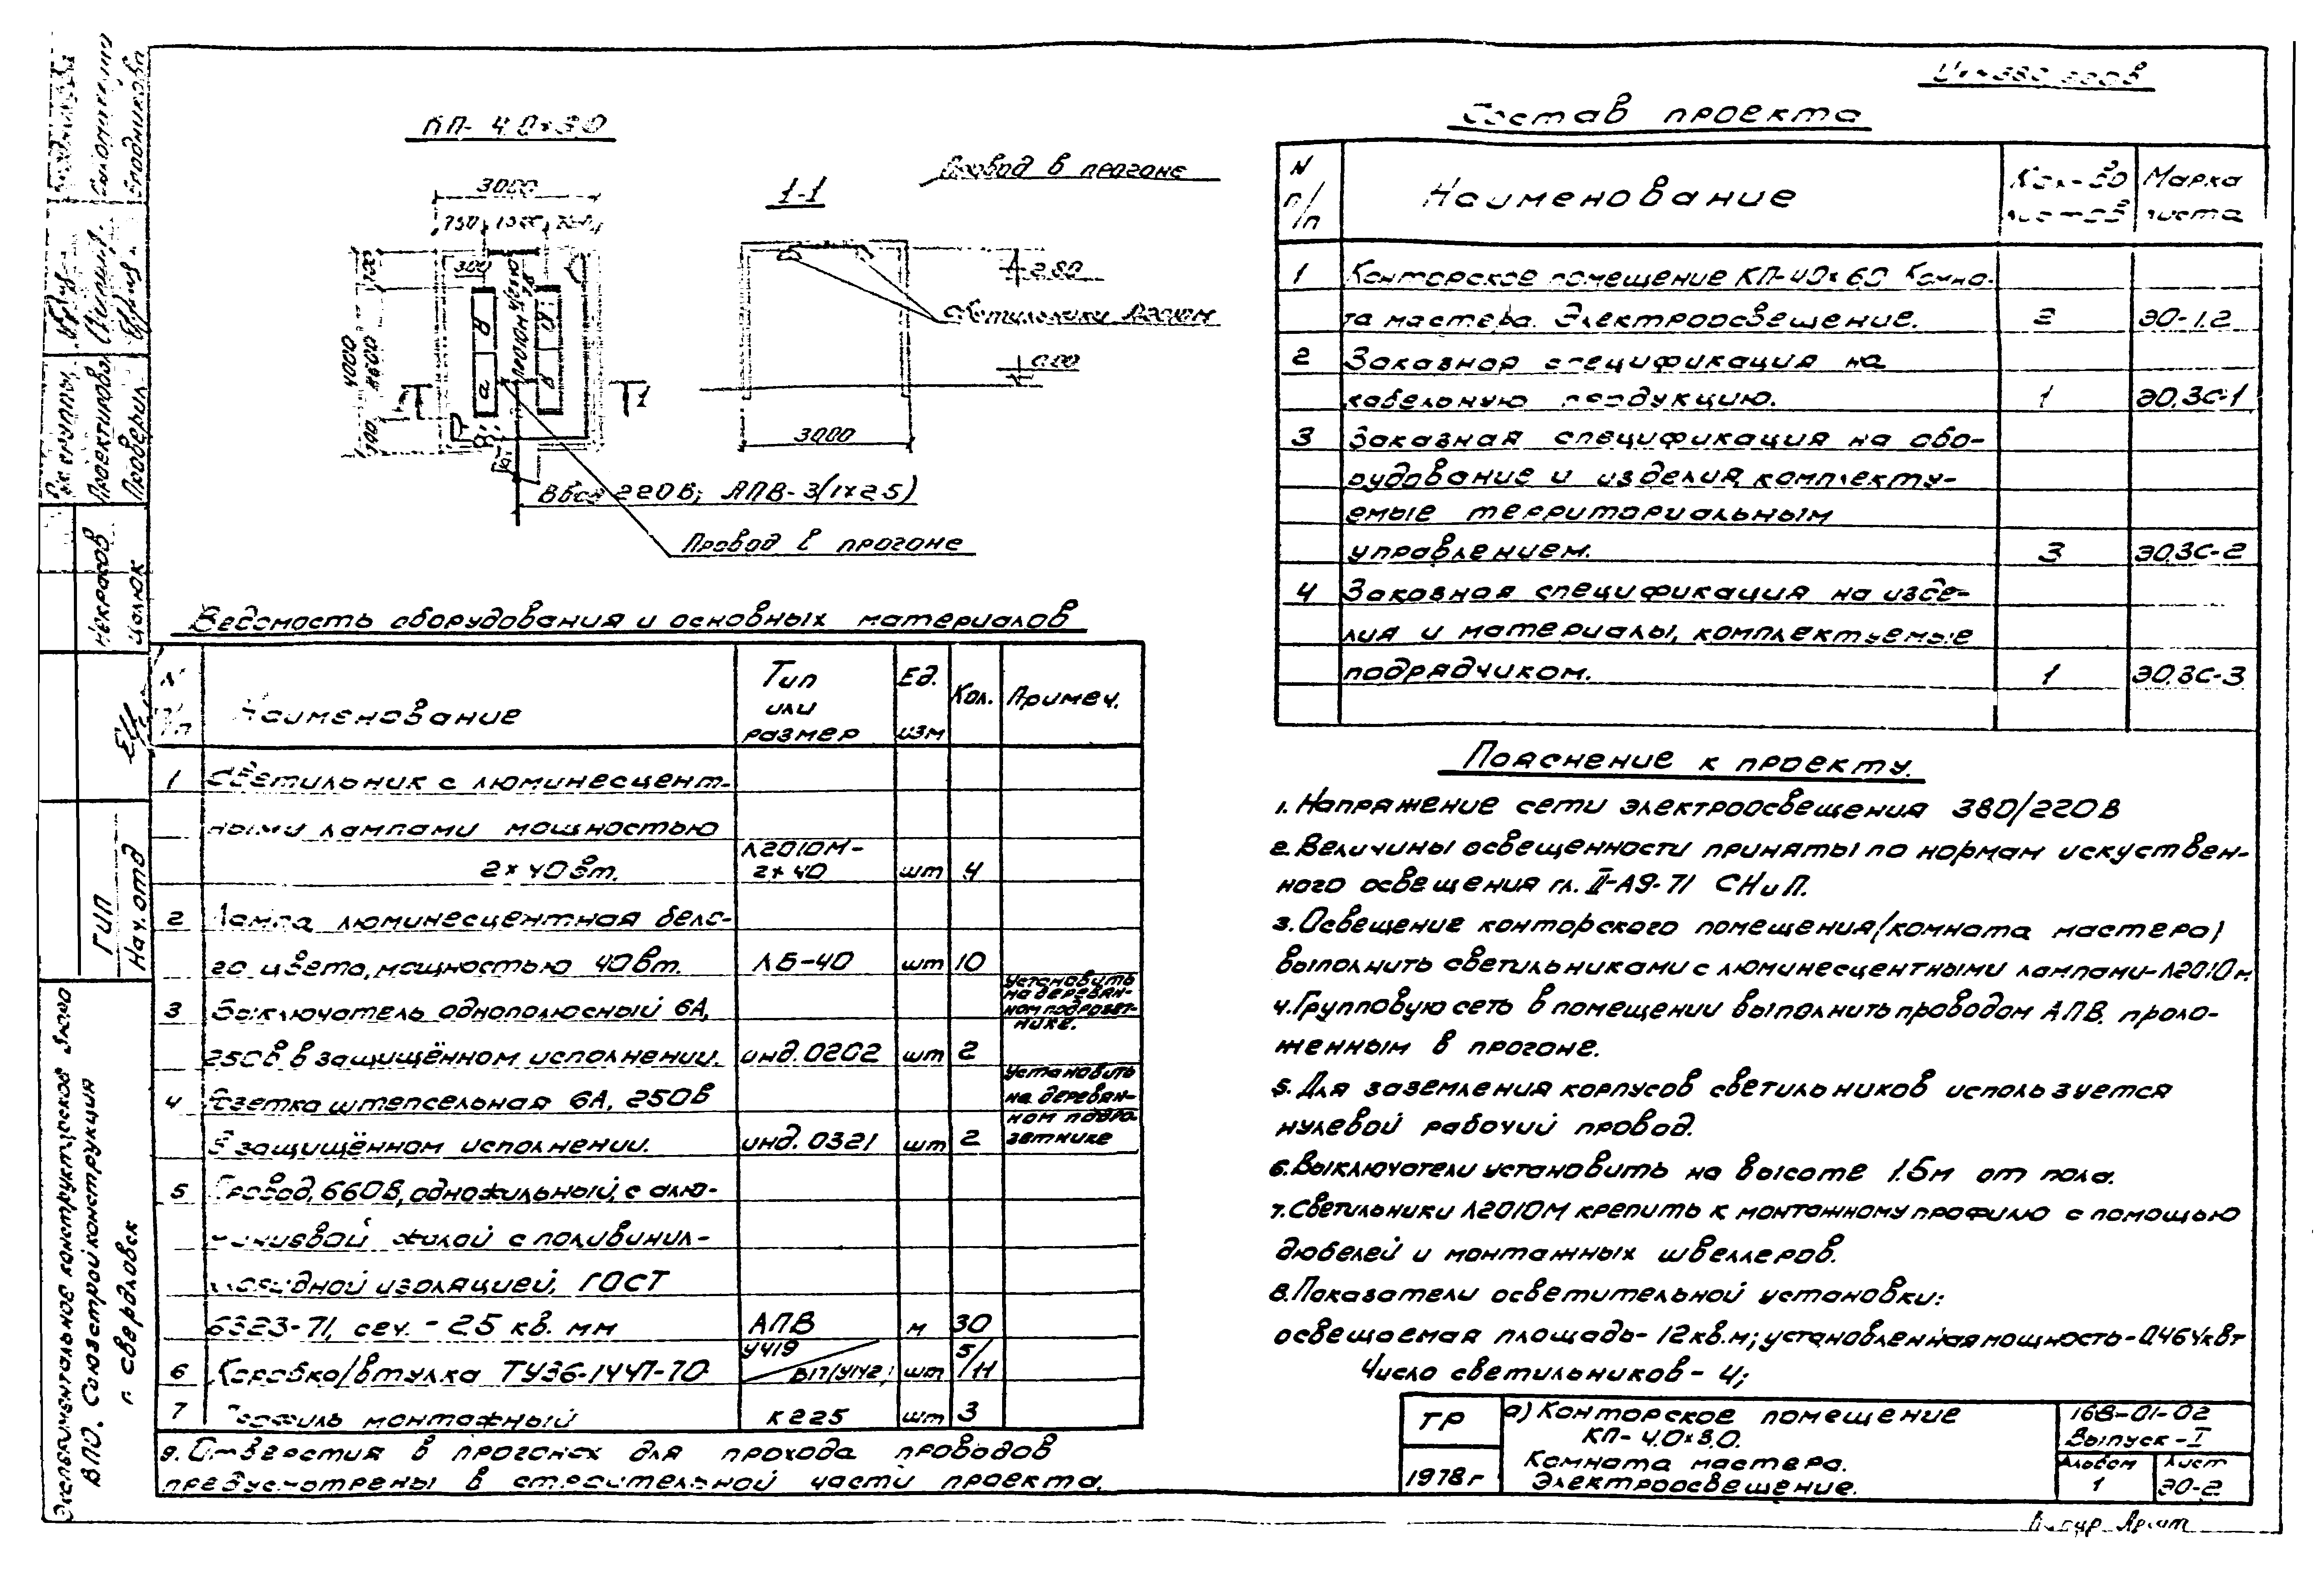 КП- 4.0×3.0
3000
750
300
4000
1-1
Провод в прогоне
2.80
Светильники Л2010М
0.00
3000
Ввод 220В; АПВ-3(1×2.5)
Провод в прогоне
Ведомость оборудования и основных материалов
N п/п
Наименование
Тип или размер
Ед. изм
Кол.
Примеч.
1 Светильник с люминесцент-
ными лампами мощностью
2×40вт. Л2010М-2×40 шт 4
2 Лампа люминесцентная бело-
го цвета, мощностью 40вт. ЛБ-40 шт 10
3 Выключатель однополюсный 6А,
250В в защищённом исполнении. инд.0202 шт 2
Установить
на деревян-
ном подрозет-
нике.
4 Розетка штепсельная 6А, 250В
в защищённом исполнении. инд.0321 шт 2
Установить
на деревян-
ном подро-
зетнике
5 Провод, 660В, одножильный, с алю-
миниевой жилой с поливинил-
хлоридной изоляцией, ГОСТ
6323-71, сеч. - 2.5 кв. мм АПВ м 30
6 Коробка/втулка ТУ36-1447-70 У419 шт 5/
7 Профиль монтажный К225 шт 3
9. Отверстия в прогонах для прохода проводов
предусмотрены в строительной части проекта.
Состав проекта
N п/п
Наименование
Кол-во листов
Марка листа
1 Конторское помещение КП-40×60 Комна-
та мастера. Электроосвещение. 2 ЭО-1.2
2 Заказная спецификация на
кабельную продукцию. 1 ЭО.ЗС-1
3 Заказная спецификация на обо-
рудование и изделия, комплекту-
емые территориальным
управлением. 3 ЭО.ЗС-2
4 Заказная спецификация на изде-
лия и материалы, комплектуемые
подрядчиком. 1 ЭО.ЗС-3
Пояснение к проекту.
1. Напряжение сети электроосвещения 380/220В
2. Величины освещенности приняты по нормам искуствен-
ного освещения гл. II-А9-71 СНиП.
3. Освещение конторского помещения/комната мастера)
выполнить светильниками с люминесцентными лампами-Л2010м.
4. Групповую сеть в помещении выполнить проводом АПВ, проло-
женным в прогоне.
5. Для заземления корпусов светильников используется
нулевой рабочий провод.
6. Выключатели установить на высоте 1.5м от пола.
7. Светильники Л2010М крепить к монтажному профилю с помощью
дюбелей и монтажных швеллеров.
8. Показатели осветительной установки:
освещаемая площадь- 12кв.м; установленная мощность-0.464квт
Число светильников- 4;
ТР
1978г
а) Конторское помещение
КП- 4.0×3.0.
Комната мастера.
Электроосвещение.
168-01-02
Выпуск-I
Альбом 1
Лист ЭО-2
Экспериментальное конструкторское бюро
ВПО. Союзстройконструкция
г. Свердловск
ГИП
Нач. отд
Некрасов
Цалюк
Рук. группы
Проектировал
Проверил